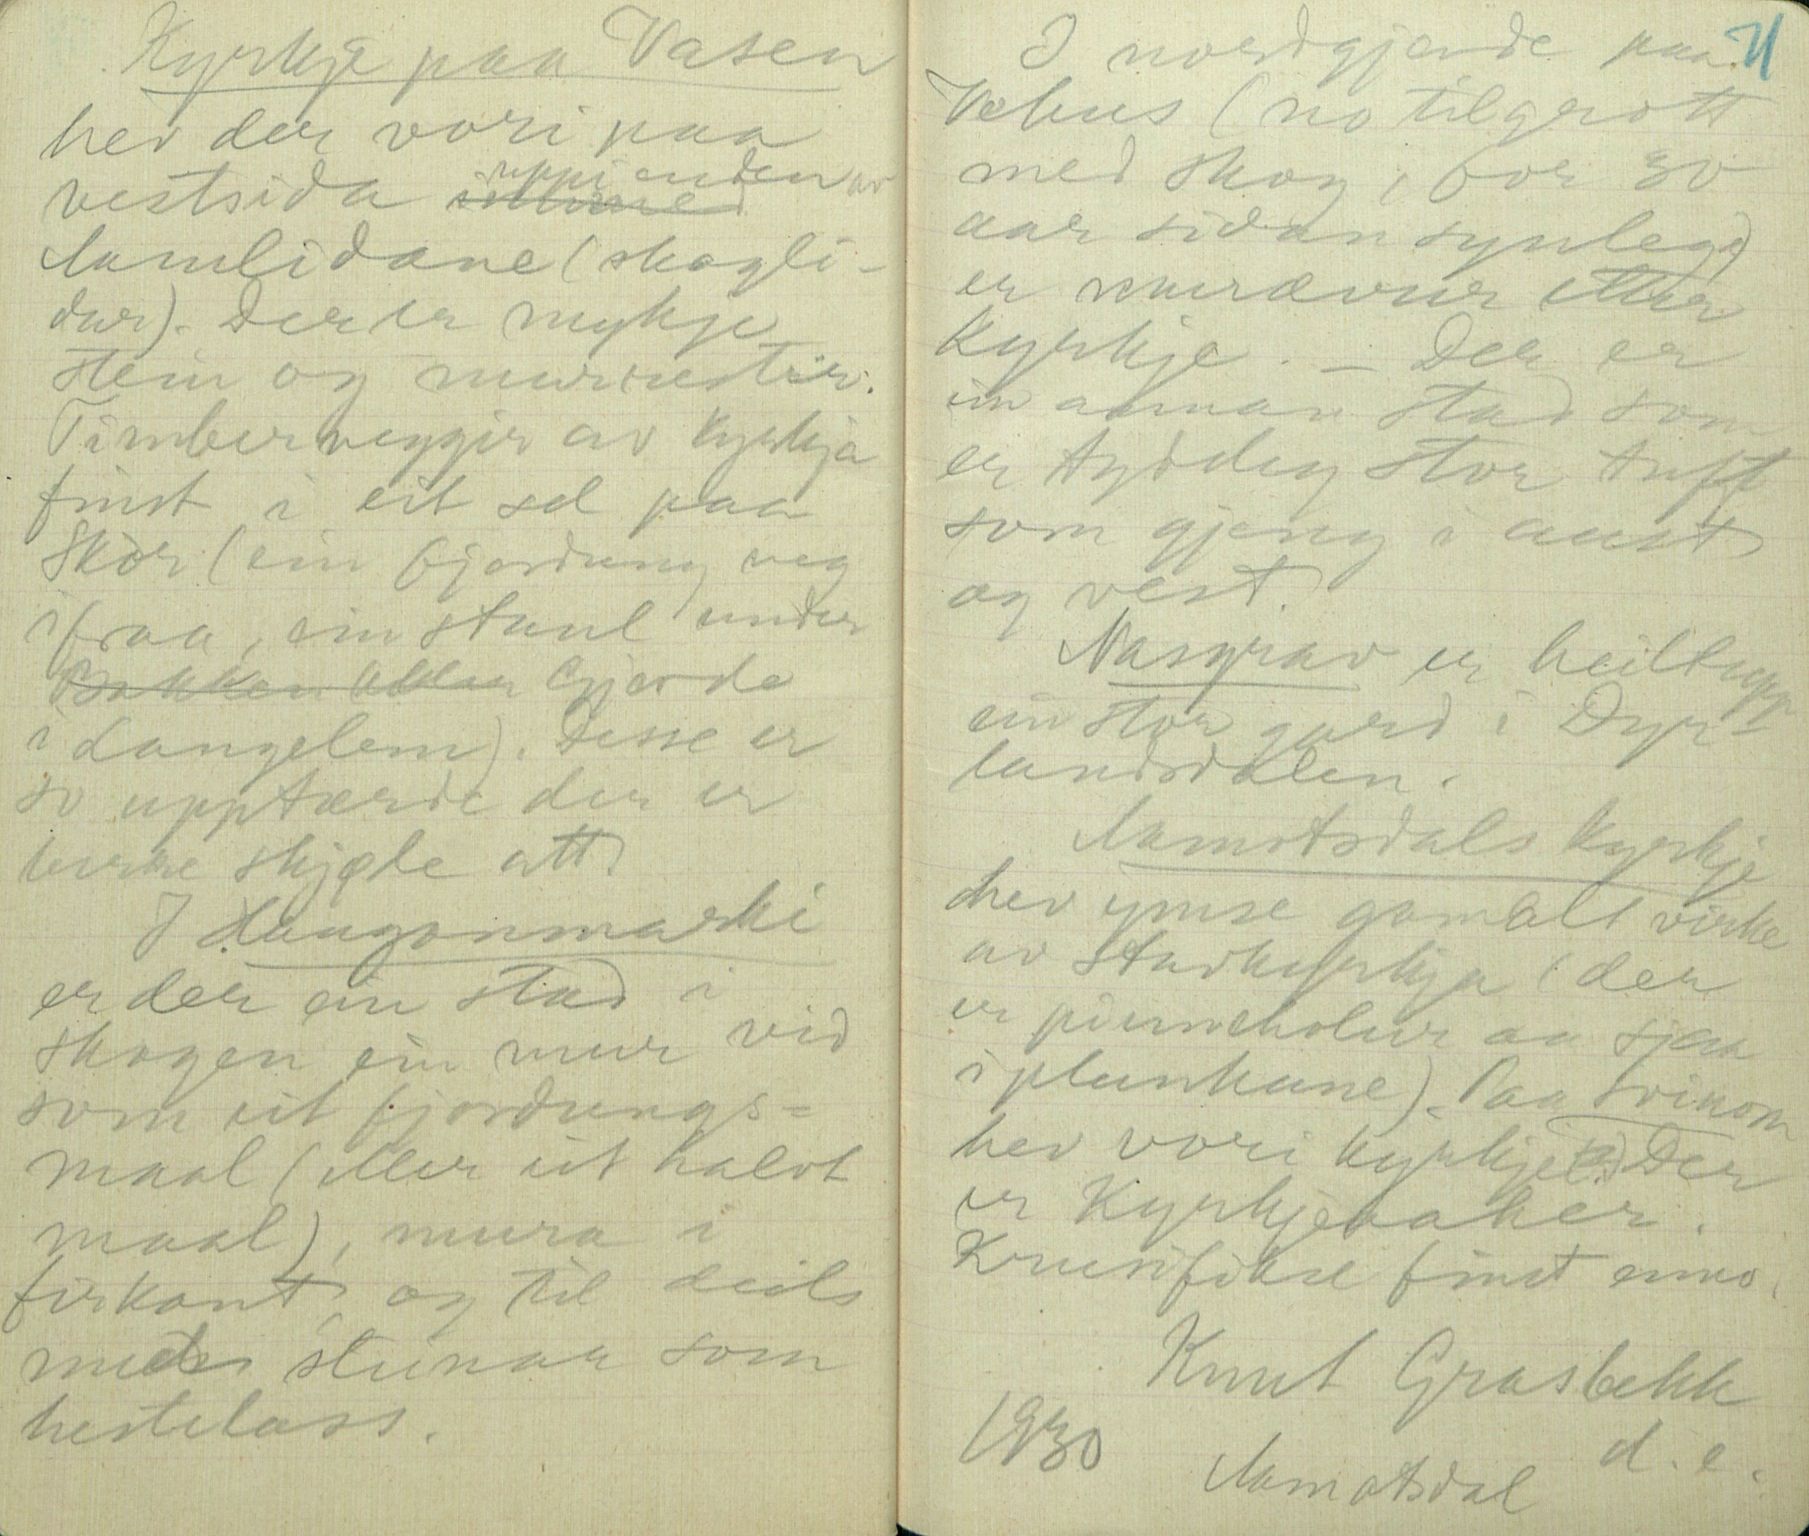 Kyrkje paa Vasen
hev der vori paa
vestsida uppi enden av
Aamlidane (skogli-
dar). Der er mykje
stein og murrestir.
Timberveggir av kyrkja
finst i eit sel paa
Skòr (ein fjordung veg
ifraa, ein staul under
Gjerde
i Langelem). Desse er
so upptærde der er
berre skjøle att.
I Haugonmarki
er der ein stad i
skogen ein mur vid
som eit fjordungs-
maal (eller eit halvt
maal), mura i
firkant, og til deils
med steinar som
hestelass.
71
I nordgjerde paa
Vehus (no tilgrott
med skog, for 30
aar sidan synleg)
er murævur etter
kyrkje. — Der er
ein annan stad som
er tyddeleg stor tuft
som gjeng i aust
og vest.
Nasgrav er heiltupp
ein stor gard i Dyr-
landsdalen.
Aamotsdals kyrkje
hev ymse gamalt virke
av stavkyrkja (der
er pinneholur aa sjaa
i plankane). Paa Svinom
hev vori kyrkje(?) Der
er Kyrkjeaaker.
Krusifikse finst enno.
Knut Grasbekk
1930
d. e.
Aamotsdal